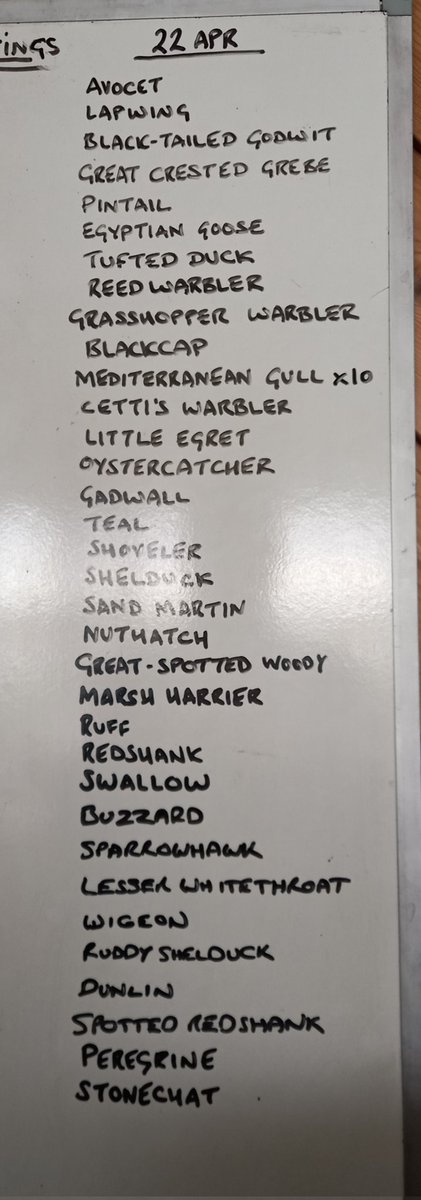 INGS 22 APR
AVOCET
LAPWING
BLACK-TAILED GODWIT
GREAT CRESTED GREBE
PINTAIL
EGYPTIAN GOOSE
TUFTED DUCK
REED WARBLER
GRASSHOPPER WARBLER
BLACKCAP
MEDITERRANEAN GULL x10
CETTI'S WARBLER
LITTLE EGRET
OYSTERCATCHER
GADWALL
TEAL
SHOVELER
SHELDUCK
SAND MARTIN
NUTHATCH
GREAT-SPOTTED WOODY
MARSH HARRIER
RUFF
REDSHANK
SWALLOW
BUZZARD
SPARROWHAWK
LESSER WHITETHROAT
WIGEON
RUDDY SHELDUCK
DUNLIN
SPOTTED REDSHANK
PEREGRINE
STONECHAT